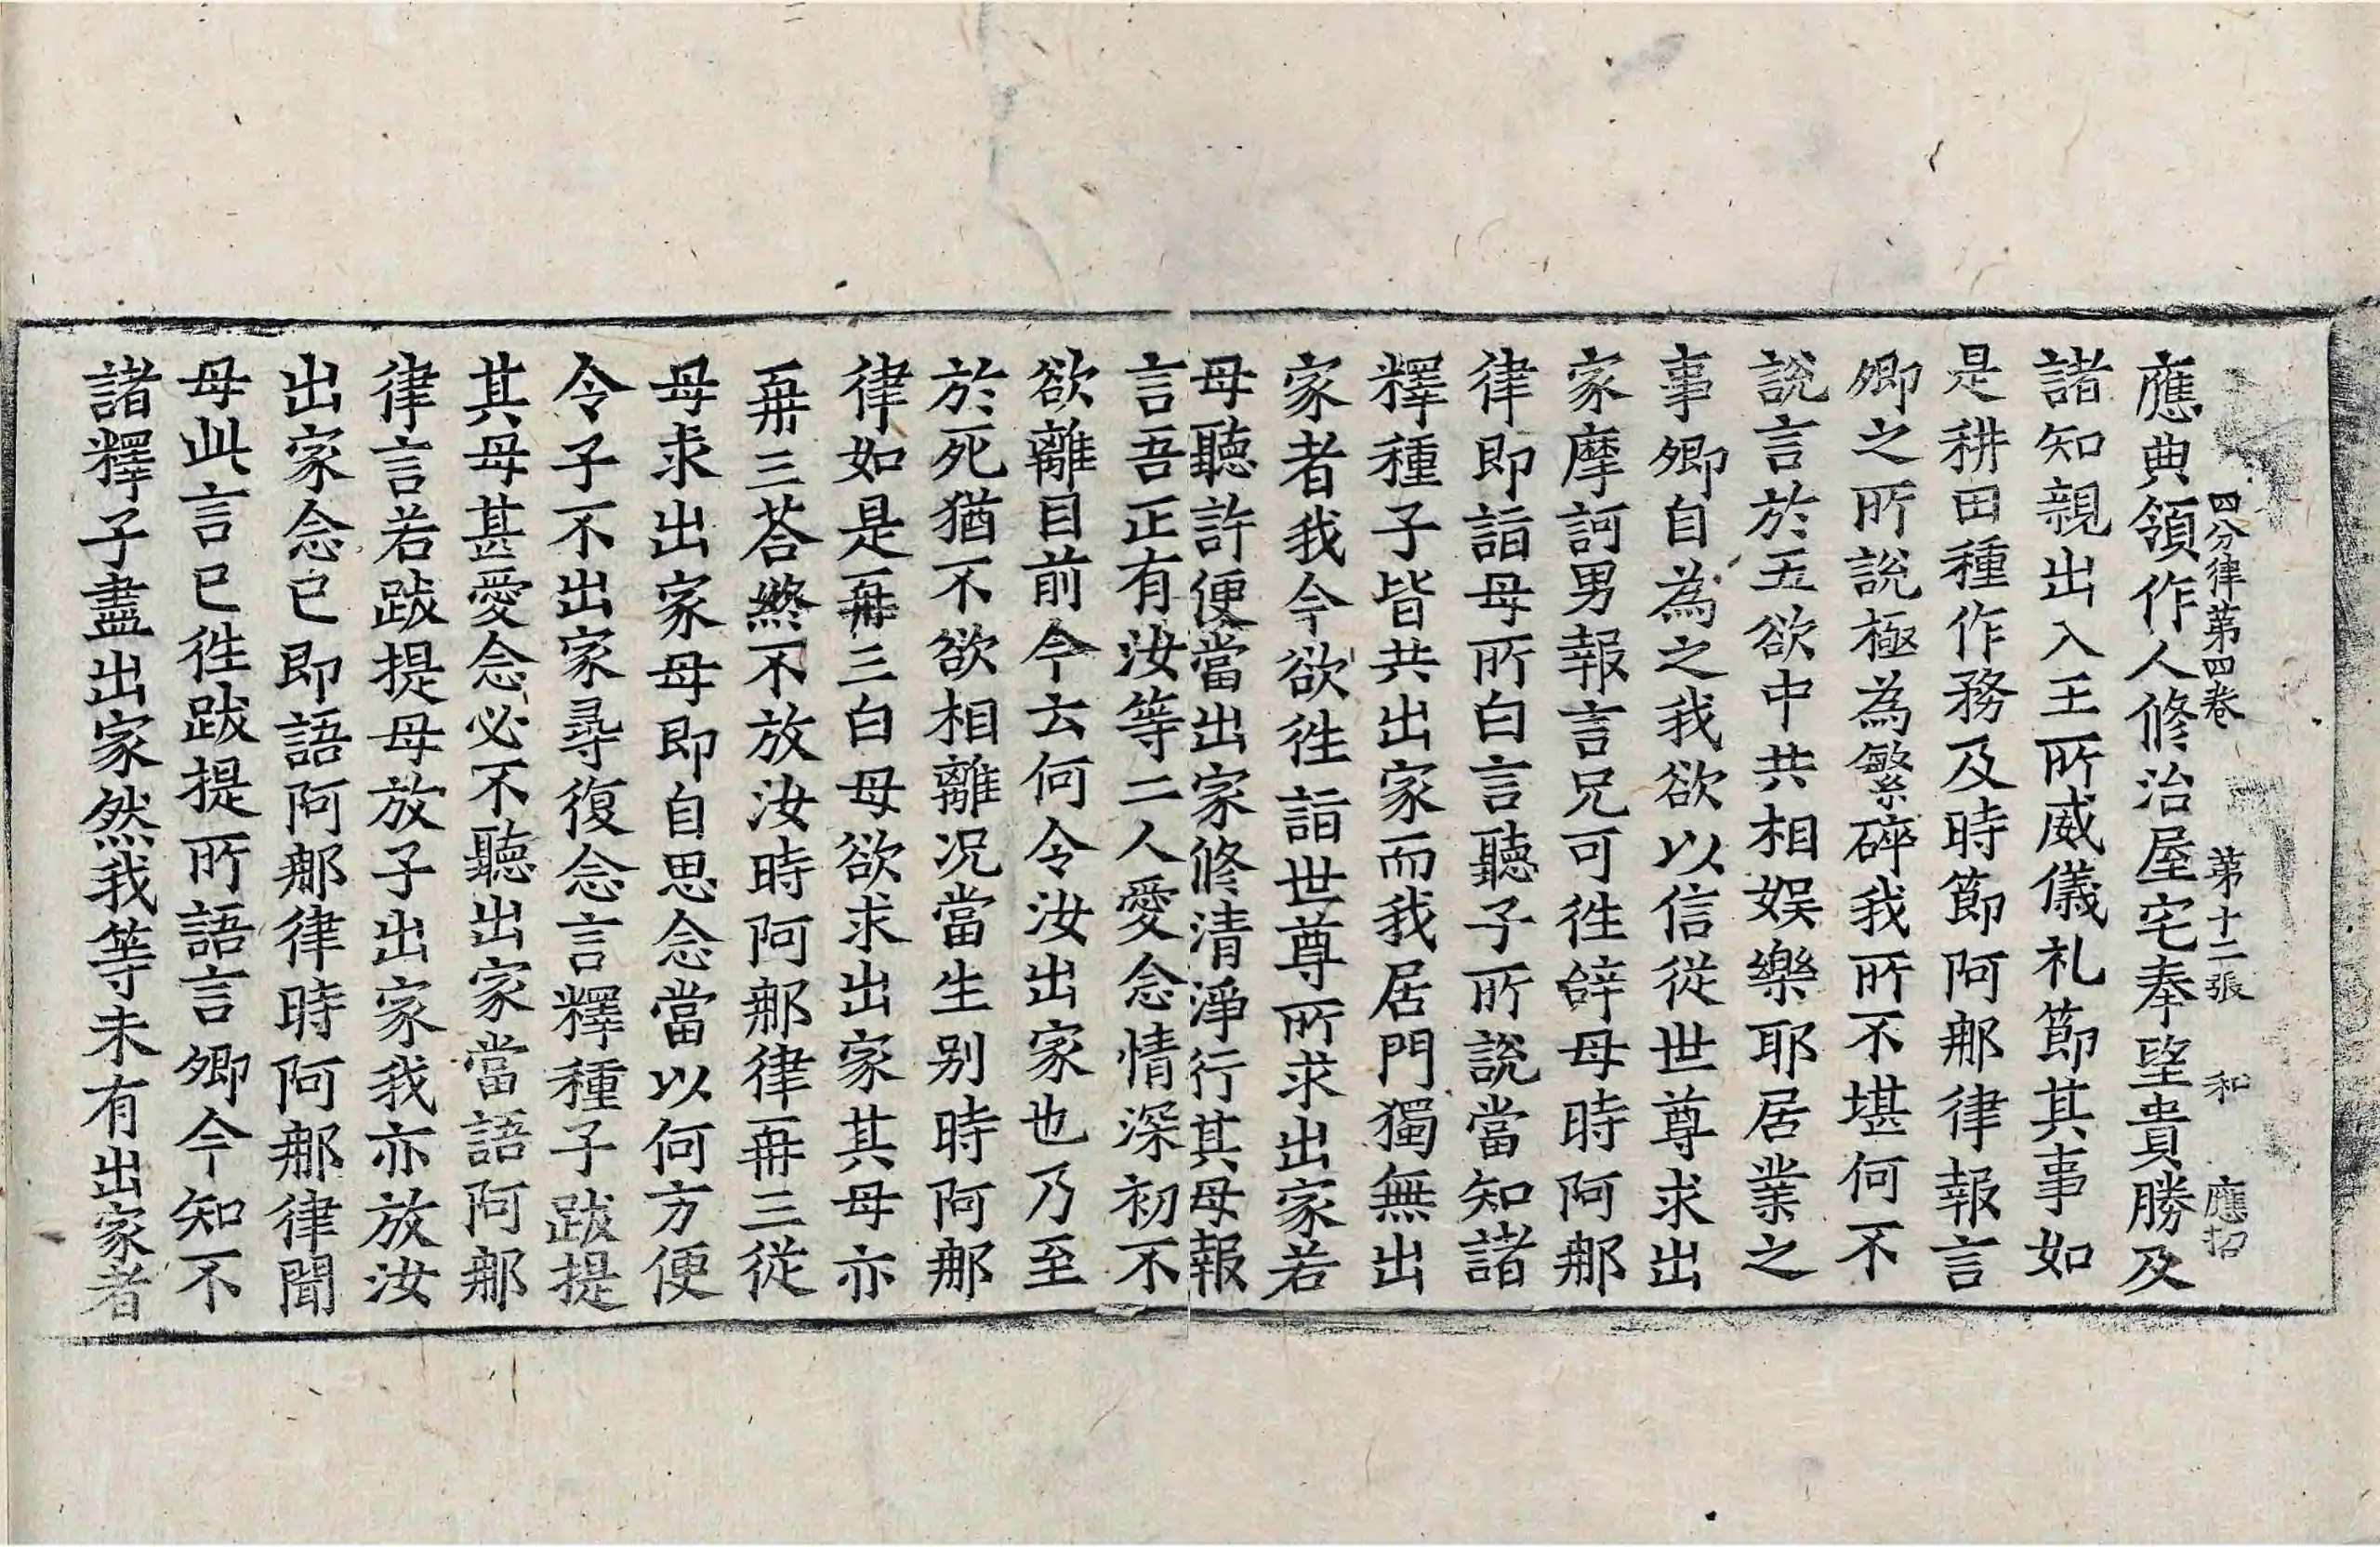 四分律第四卷 第十二張 和 應招
應典領作人修治屋宅奉望貴勝及
諸知親出入王所威儀礼節其事如
是耕田種作務及時節阿那律報言
卿之所說極為繁碎我所不堪何不
說言於五欲中共相娛樂耶居業之
事卿自為之我欲以信從世尊求出
家摩訶男報言兄可徃辝母時阿那
律即詣母所白言聽子所說當知諸
釋種子皆共出家而我居門獨無出
家者我今欲徃詣世尊所求出家若
母聽許便當出家修清淨行其母報
言吾正有汝等二人愛念情深初不
欲離目前今云何令汝出家也乃至
於死猶不欲相離况當生別時阿那
律如是再三白母欲求出家其母亦
再三荅終不放汝時阿那律再三從
母求出家母即自思念當以何方便
令子不出家尋復念言釋種子跋提
其母甚愛念必不聽出家當語阿那
律言若跋提母放子出家我亦放汝
出家念已即語阿那律時阿那律聞
母此言已徃跋提所語言卿今知不
諸釋子盡出家然我等未有出家者